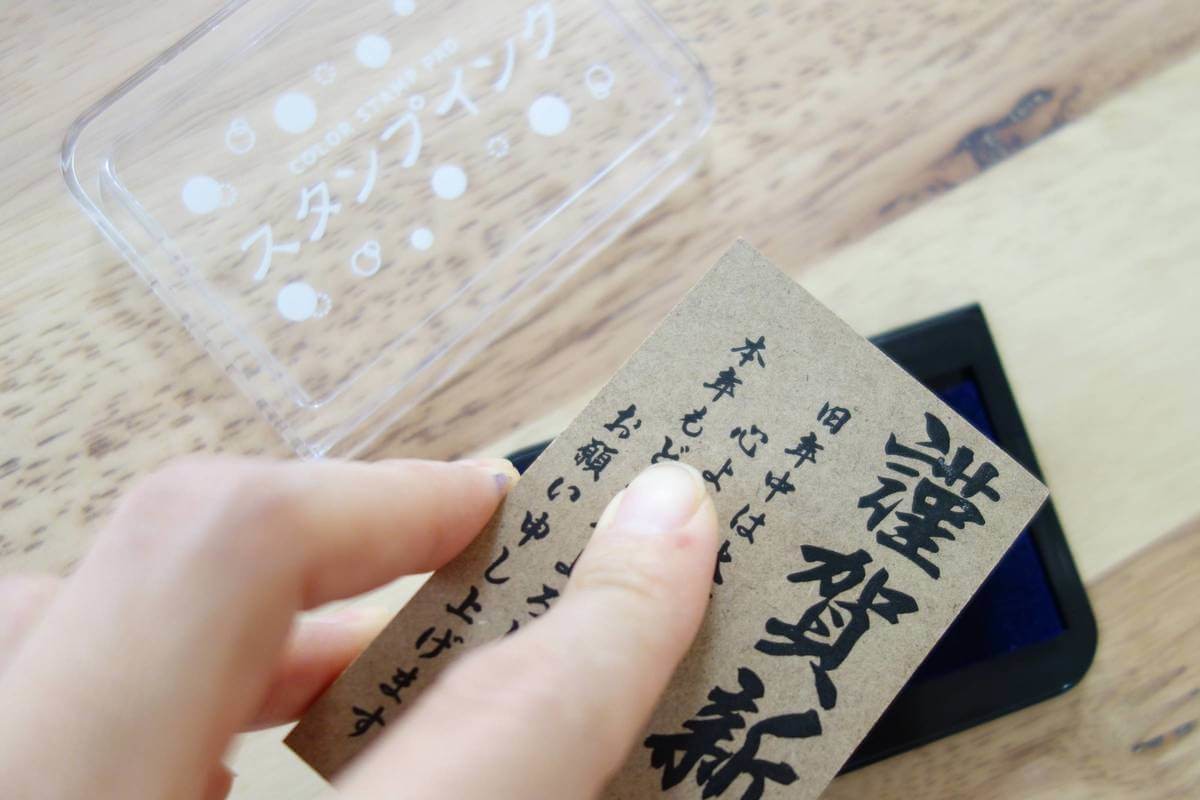 COLOR STAMP PAD
スタンプインク
謹賀新
旧年中は
心よ
本年もど
お願い申し上げます